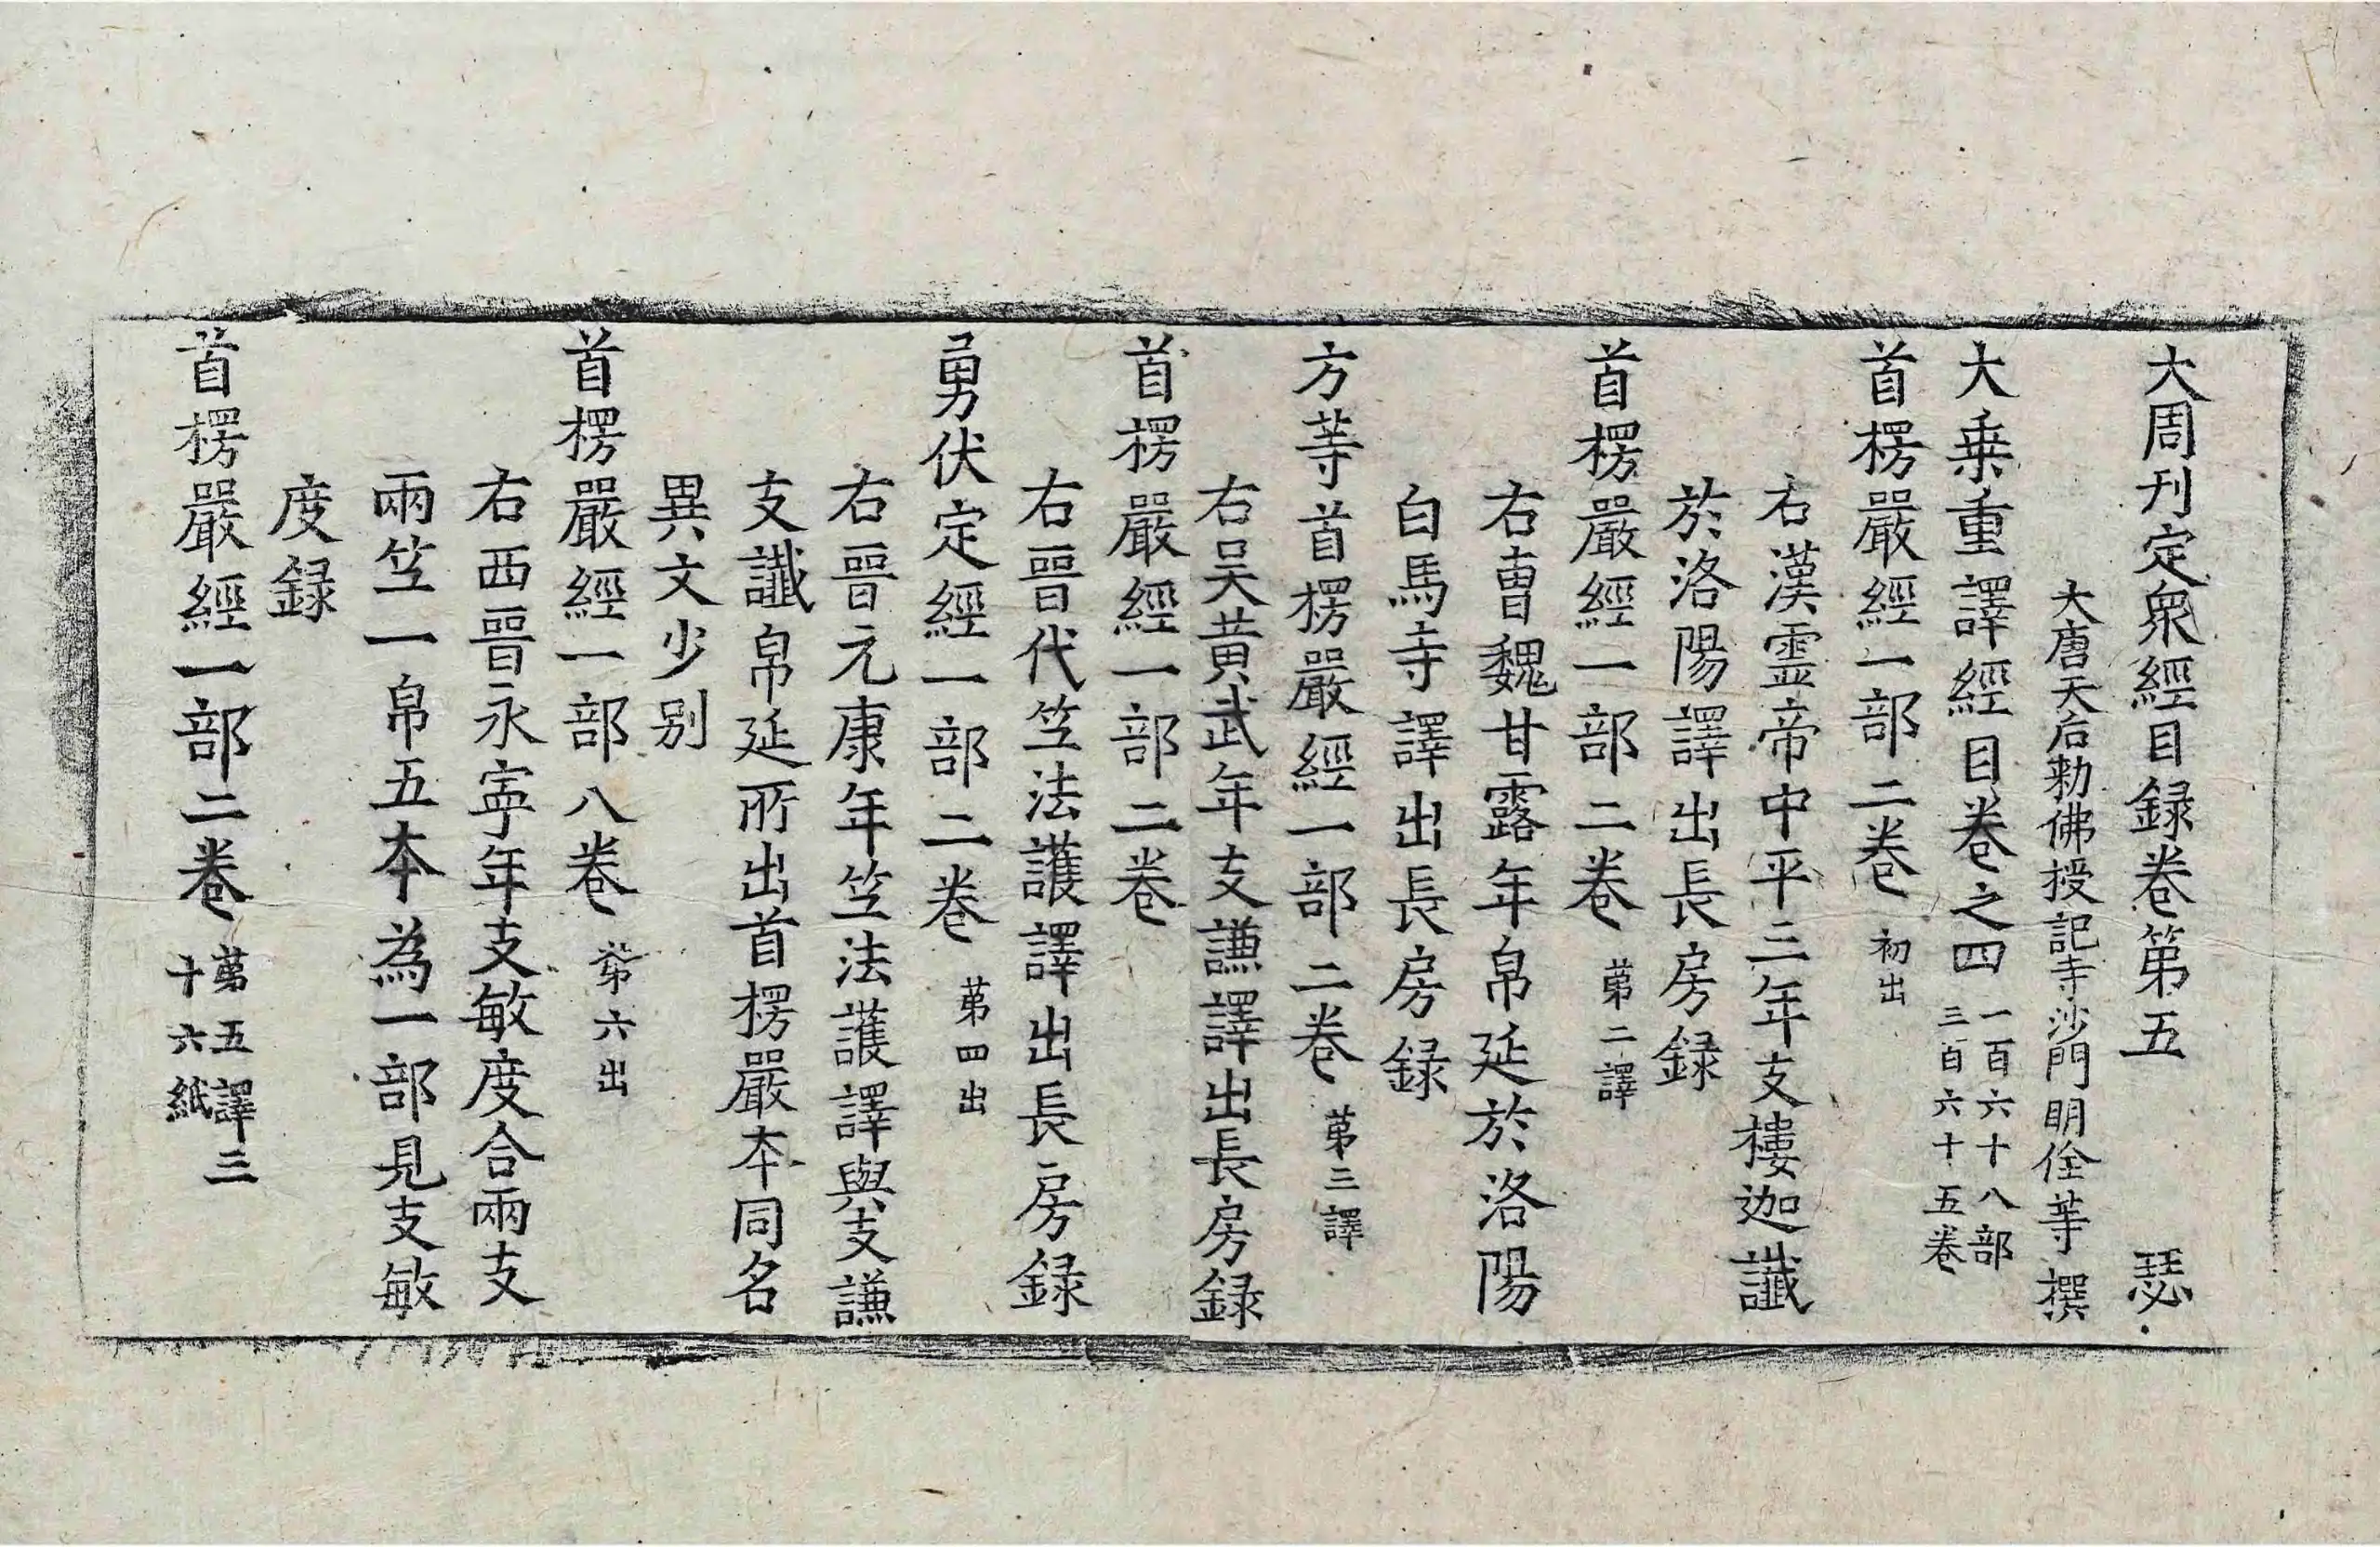 大周刊定衆經目録卷第五 瑟
大唐天后勅佛授記寺沙門明佺等撰
大乗重譯經目卷之四 一百六十八部
三百六十五卷
首楞嚴經一部二卷 初出
右漢靈帝中平三年支樓迦讖
於洛陽譯出長房録
首楞嚴經一部二卷 苐二譯
右曺魏甘露年帛延於洛陽
白馬寺譯出長房録
方等首楞嚴經一部二卷 苐三譯
右吴黄武年支謙譯出長房録
首楞嚴經一部二卷
右晉代竺法護譯出長房録
勇伏定經一部二卷 苐四出
右晉元康年竺法護譯與支謙
支讖帛延所出首楞嚴本同名
異文少别
首楞嚴經一部八卷 苐六出
右西晉永寧年支敏度合兩支
兩竺一帛五本為一部見支敏
度録
首楞嚴經一部二卷 苐五譯三
十六紙